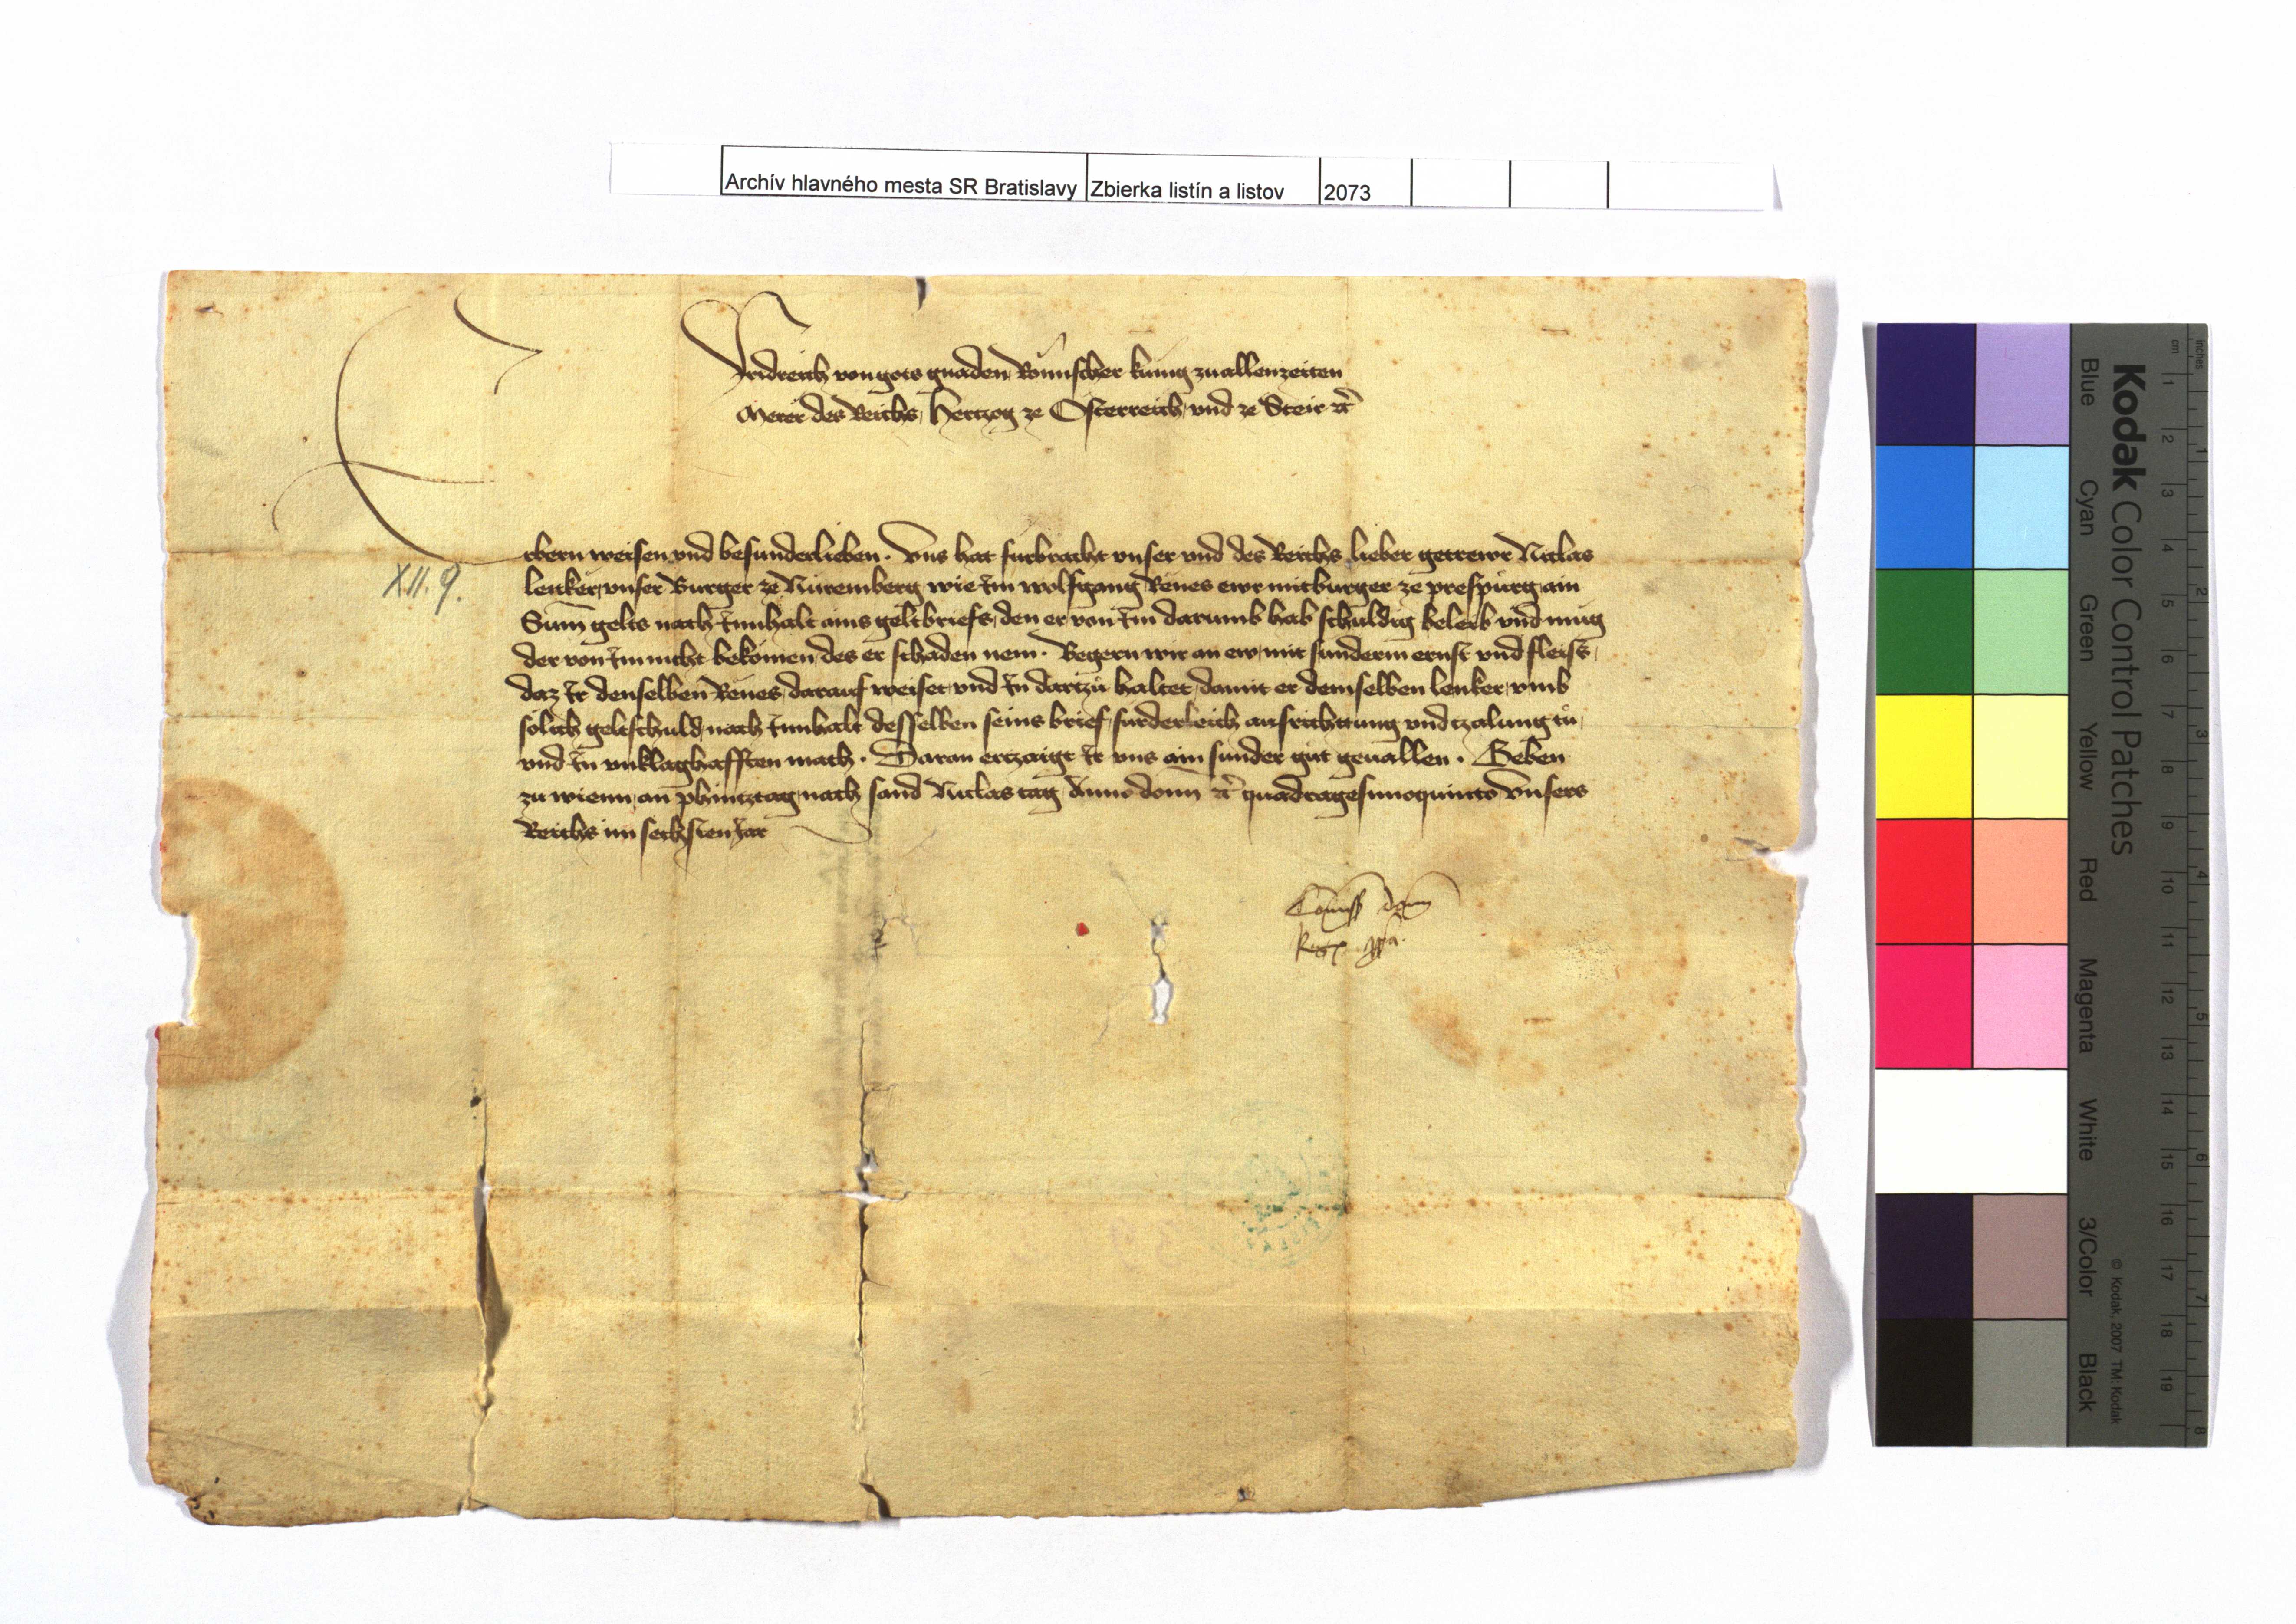 Archív hlavného mesta SR Bratislavy Zbierka listín a listov 2073
Fridreich von gots gnaden Römischer kunig zuallenzeiten
Merer des Reichs, Hertzog ze Österreich, und ze Steir etc
Erbern weisen und besunderlieben. Uns hat furbracht unser und des Reichs lieber getrewr Niclas
lenker, unser Burger ze Nüremberg wie im wolfgang Reues ewr mitburger ze prespurg, ain
Sum gelts nach innhalt ains geltbriefs, den er von im darumb hab schuldig beleib und mug
der von im nicht bekömen, des er schaden nem. Begern wir an ew, mit sunderm ernst und fleiss,
daz ir denselben Reues, darauf weiset, und in dartzu haltet, damit er demselben lenker, umb
sölich geltschuld, nach innhalt desselben seins brief, furderleich ausrichttung und tzalung tü,
und in unklaghafften mach. Daran ertzaigt ir uns ain sunder gut geuallen. Geben
zu wienn, an phintztag, nach sand Niclas tag Anno domini etc quadragesimoquinto Unsers
Reichs im sechsten Jar
XII. 9.
Comissio domini
Regis ppa.
Kodak Color Control Patches
Blue Cyan Green Yellow Red Magenta White 3/Color Black
© Kodak, 2007 TM: Kodak
inches 1 2 3 4 5 6 7 8
cm 1 2 3 4 5 6 7 8 9 10 11 12 13 14 15 16 17 18 19